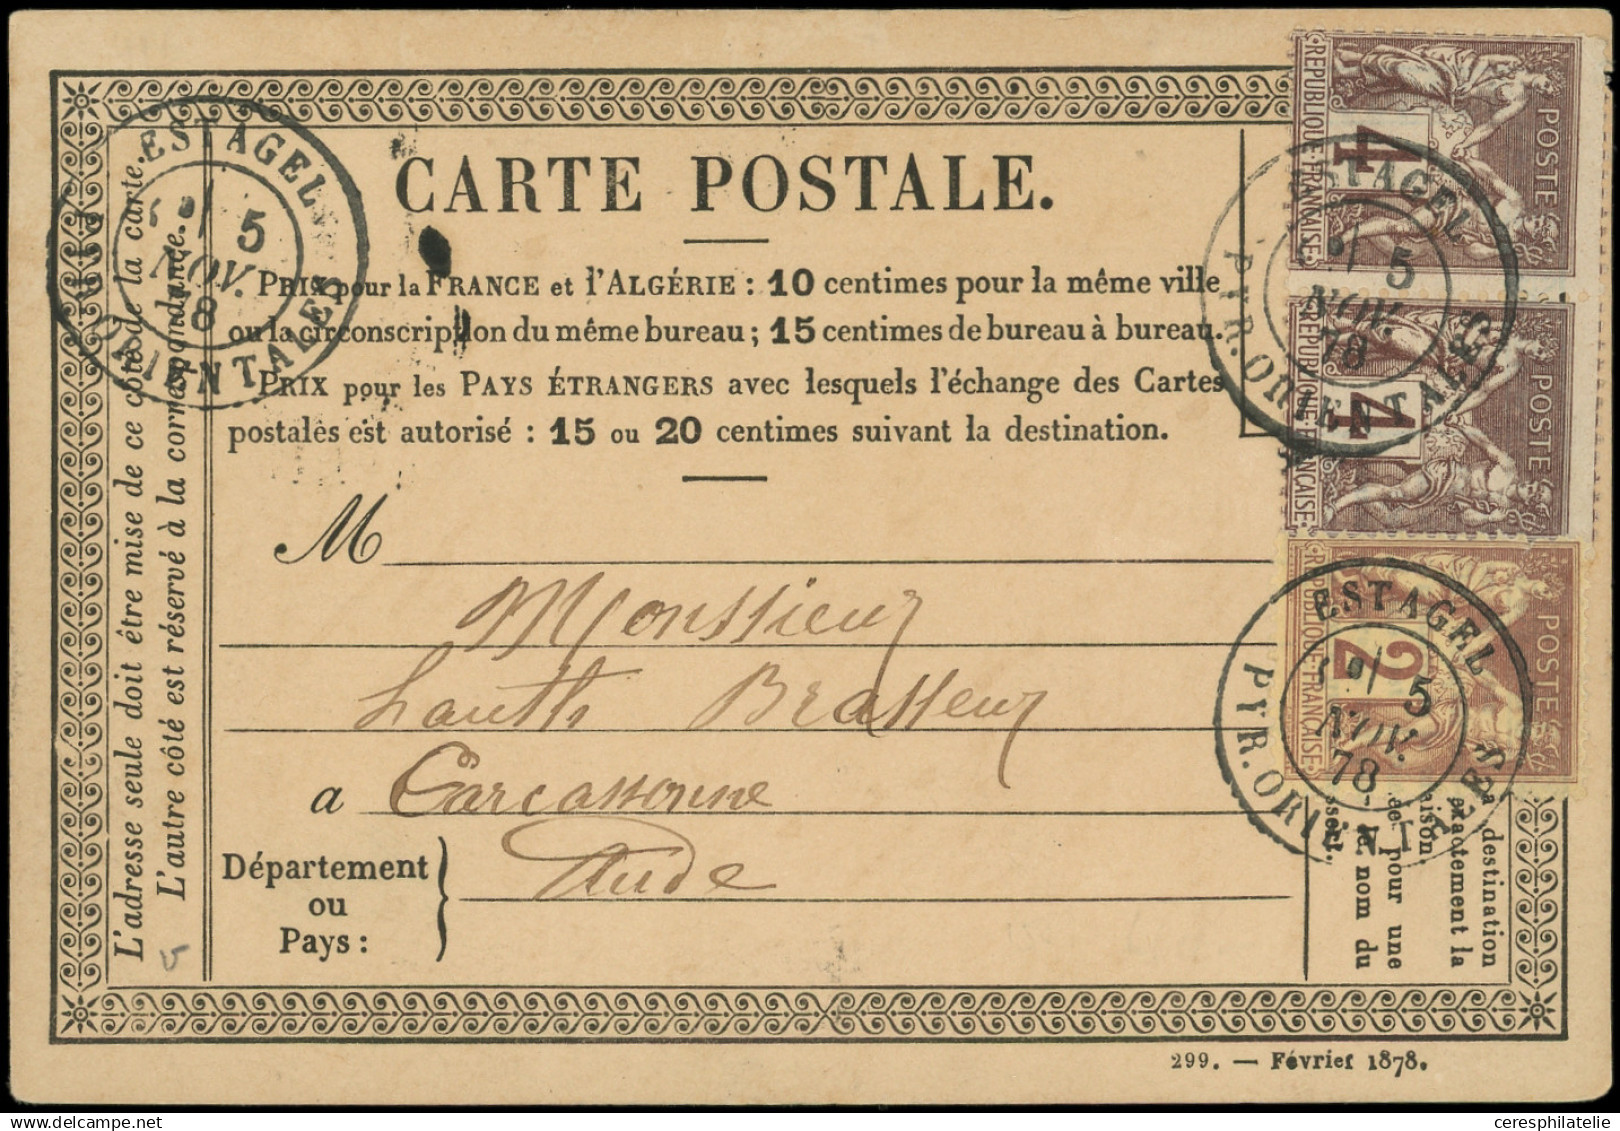 CARTE POSTALE.
PRIX pour la FRANCE et l'ALGÉRIE : 10 centimes pour la même ville
ou la circonscription du même bureau ; 15 centimes de bureau à bureau.
PRIX pour les PAYS ÉTRANGERS avec lesquels l'échange des Cartes
postales est autorisé : 15 ou 20 centimes suivant la destination.
M
Monsieur
Lauth Brasseur
a Carcassonne
Département
ou
Pays :
Aude
L'adresse seule doit être mise de ce côté de la carte.
L'autre côté est réservé à la correspondance.
ESTAGEL
5
NOV.
8
ORIENTALES
REPUBLIQUE FRANÇAISE
4
POSTE
ESTAGEL
5
NOV.
78
PYR. ORIENTALES
REPUBLIQUE FRANÇAISE
4
POSTE
REPUBLIQUE FRANÇAISE
2
POSTE
ESTAGEL
5
NOV.
78
PYR. ORIENTALES
destination
exactement la
aison.
pour une
nom du
299. — Février 1878.
www.delcampe.net
ceresphilatelie